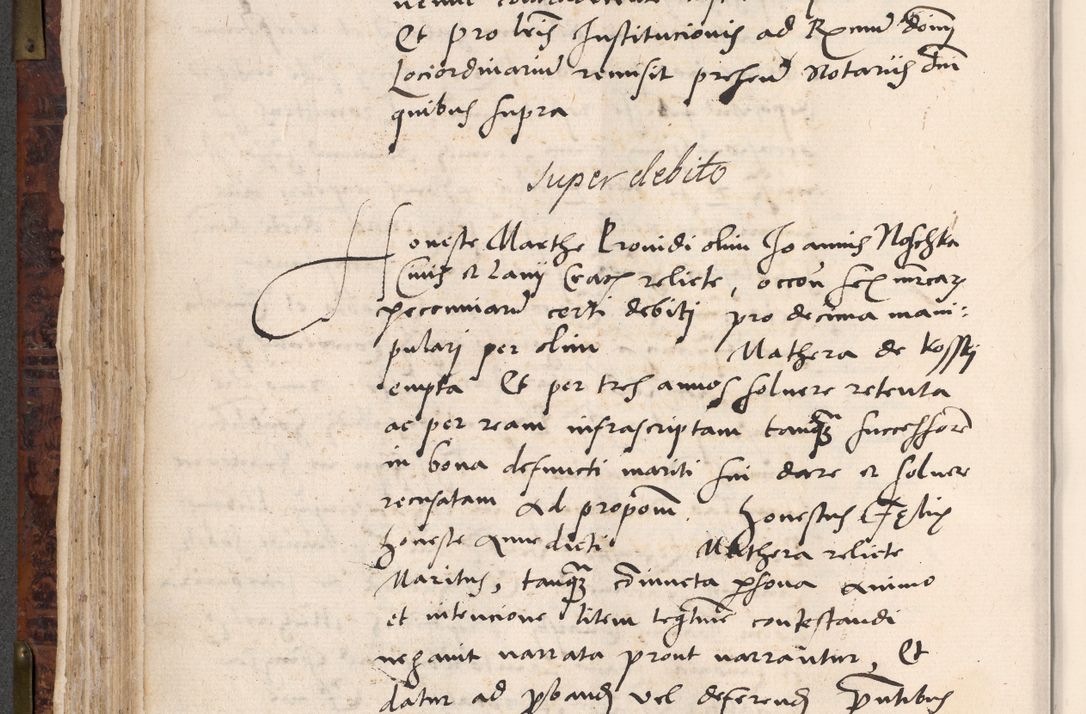 Et pro lris Institucionis ad Rxmu dom
Lociordinariu remisit presen Notariis dni
quibus supra
super debito
Honeste Marthe Providi olim Joannis Noschka
Civis et Lanii Crac relicte, occon sex mrcar
pecuniaru certi debiti pro decima mani:
pulari per olim Mathera de Kossky
empta Et per tres annos solvere retenta
ac per ream infrascriptam tanq successore
in bona defuncti mariti sui dare et solvere
recusatam Ad propom. Honestus Felix
honeste Anne dicti Mathera relicte
Maritus, tanq coniuncta psona animo
et intencione litem legtime contestandi
negavit narrata prout narrantur, Et
datur ad pband vel deferend pntibus